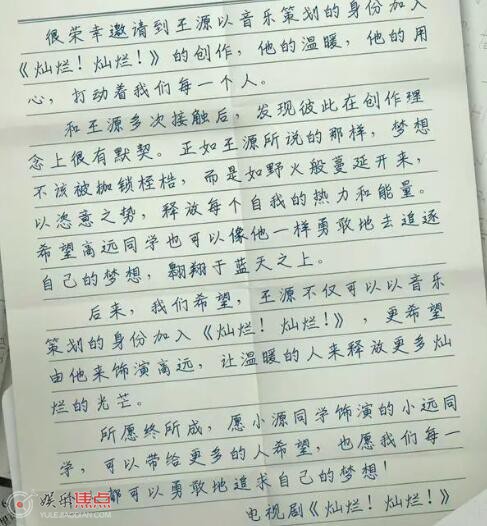 很荣幸邀请到王源以音乐策划的身份加入
《灿烂！灿烂！》的创作，他的温暖，他的用
心，打动着我们每一个人。
和王源多次接触后，发现彼此在创作理
念上很有默契。正如王源所说的那样，梦想
不该被枷锁桎梏，而是如野火般蔓延开来，
以恣意之势，释放每个自我的热力和能量。
希望高远同学也可以像他一样勇敢地去追逐
自己的梦想，翱翔于蓝天之上。
后来，我们希望，王源不仅可以以音乐
策划的身份加入《灿烂！灿烂！》，更希望
由他来饰演高远，让温暖的人来释放更多灿
烂的光芒。
所愿终所成，愿小源同学饰演的小远同
学，可以带给更多的人希望，也愿我们每一
都可以勇敢地追求自己的梦想！
电视剧《灿烂！灿烂！》
娱乐焦点
YULEJIAODIAN.COM